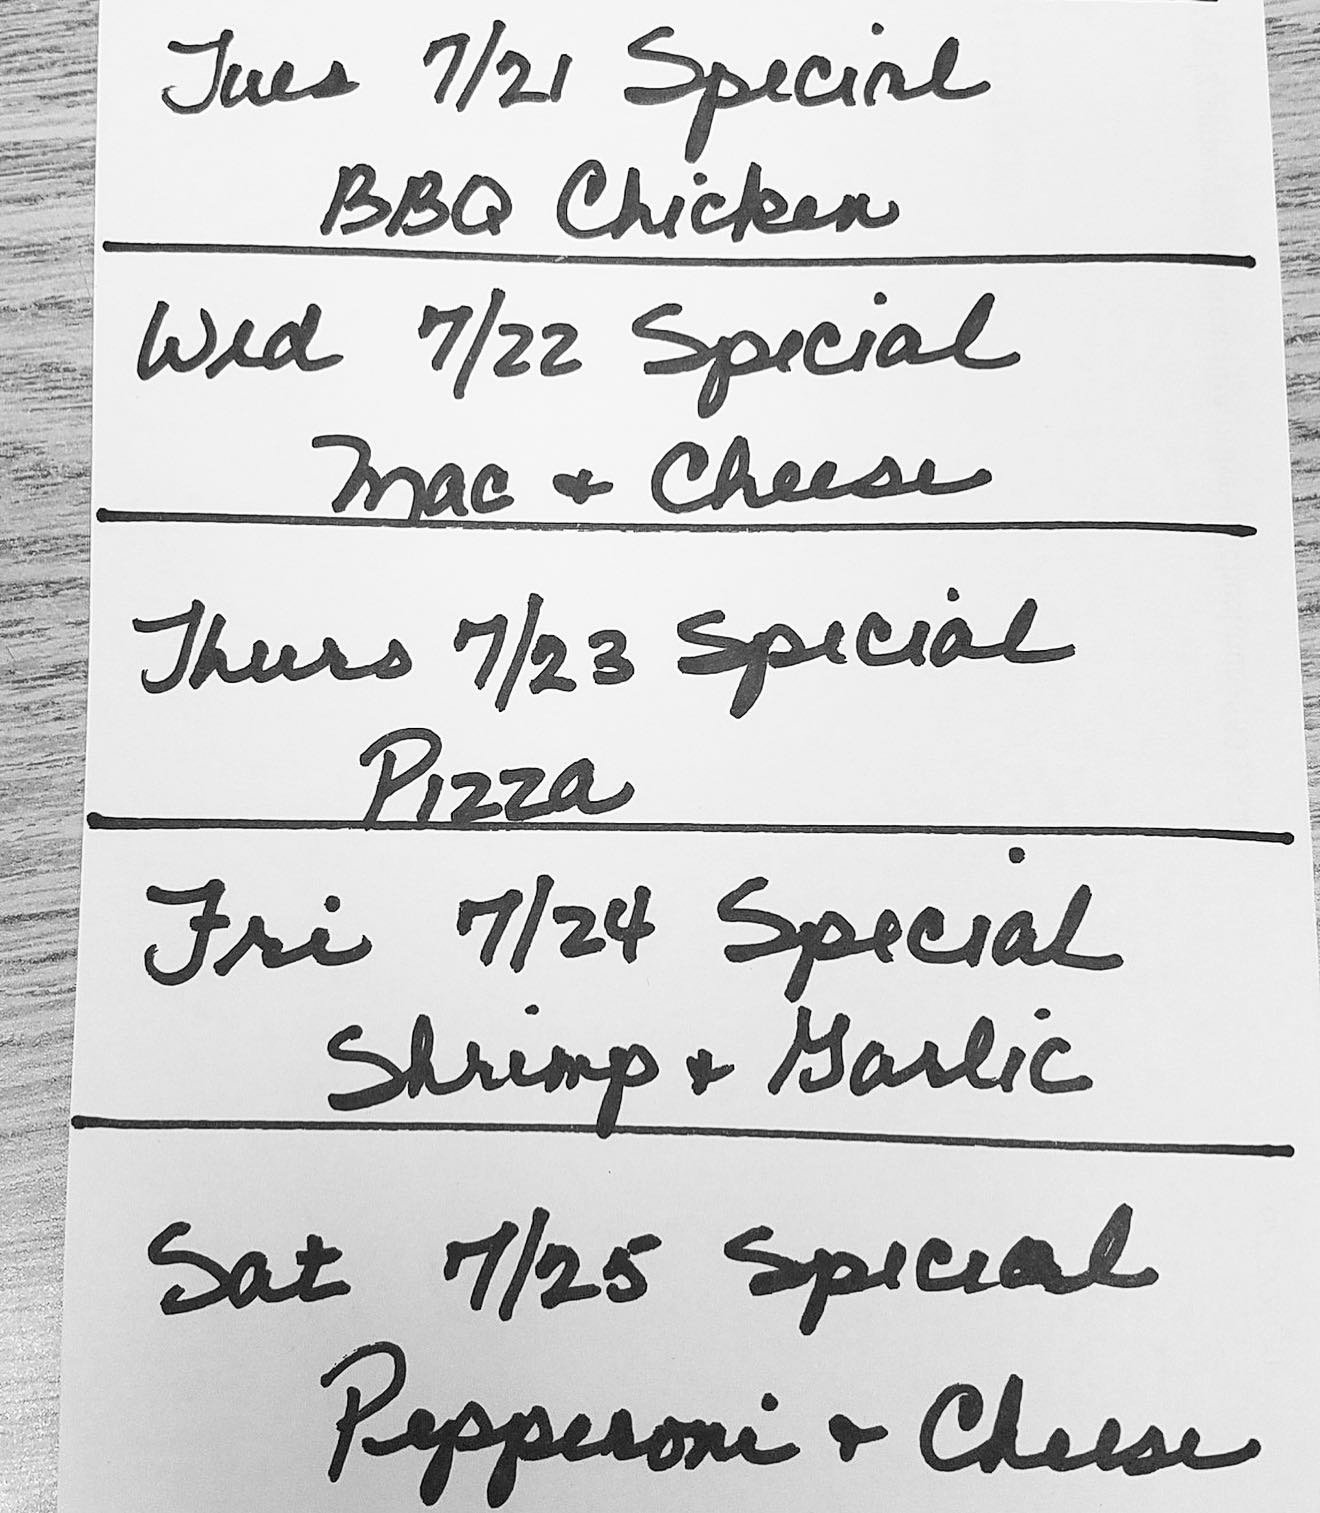 Tues 7/21 Special
BBQ Chicken
Wed 7/22 Special
Mac & Cheese
Thurs 7/23 Special
Pizza
Fri 7/24 Special
Shrimp & Garlic
Sat 7/25 Special
Pepperoni & Cheese